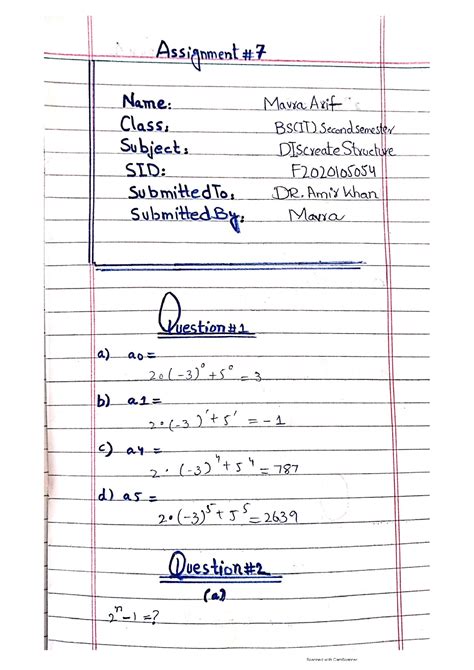 Assignment #7
Name: Mavra Arif
Class: BS(IT) Second semester
Subject: DIscreate Structure
SID: F2020105054
Submitted To: DR. Amir Khan
Submitted By: Mavra
Question #1
a) a0 =
2•(-3)⁰ + 5⁰ = 3
b) a1 =
2•(-3)¹ + 5¹ = -1
c) a4 =
2•(-3)⁴ + 5⁴ = 787
d) a5 =
2•(-3)⁵ + 5⁵ = 2639
Question #2
(a)
2ⁿ - 1 = ?
Scanned with CamScanner